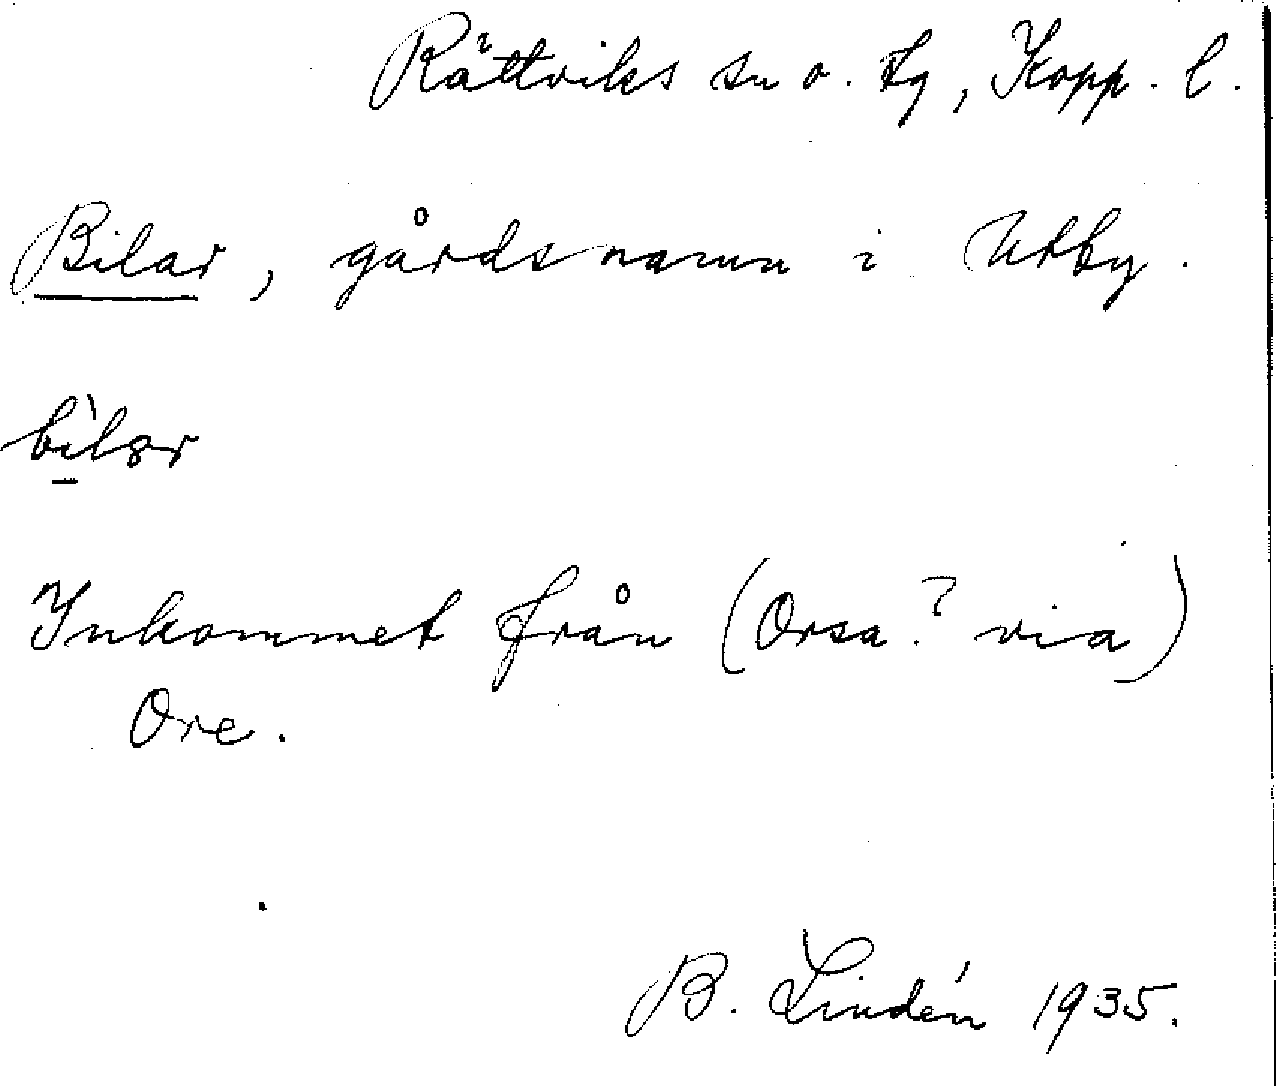 Rättviks sn o. tg, Kopp. l.
Bilar, gårdsnamn i Utby.
Inkommet från (Orsa? via)
Ore.
B. Lindén 1935.